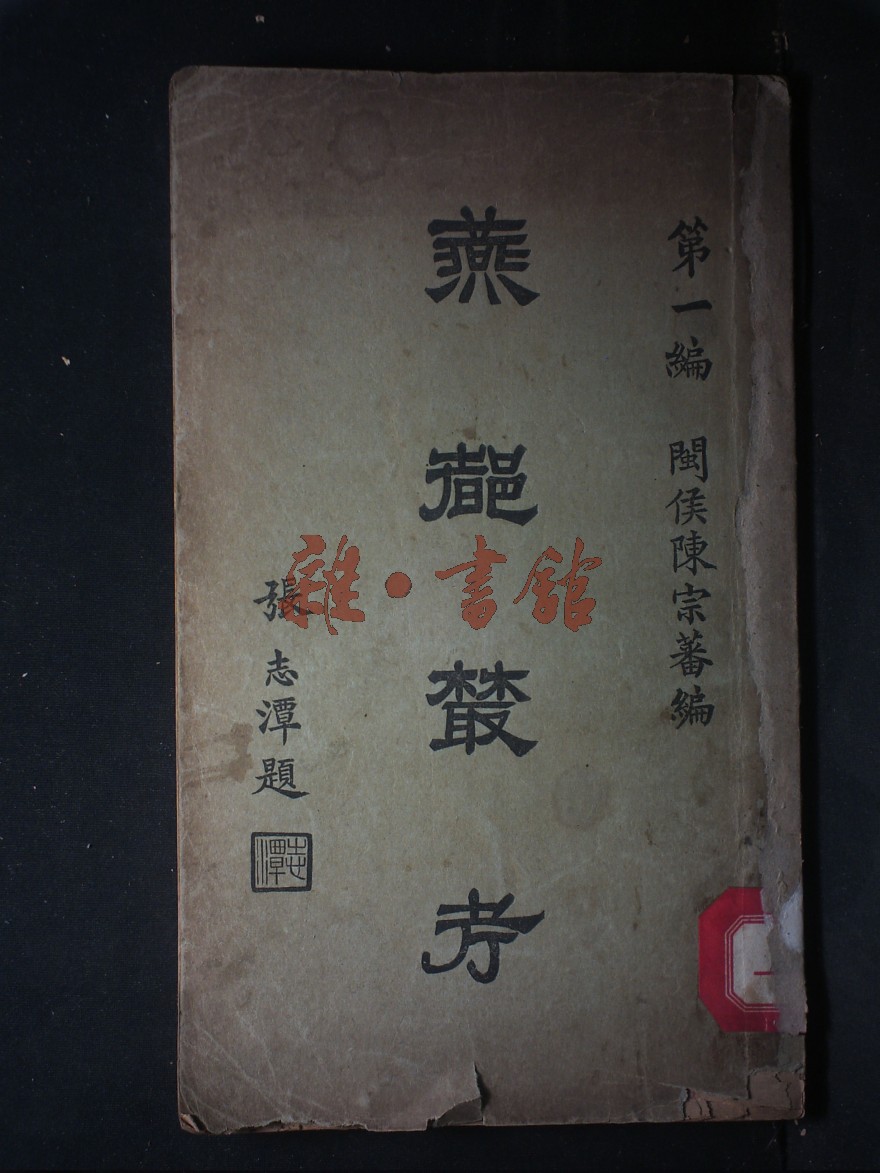 第一編 閩侯陳宗蕃編
燕都叢考
張志潭題
志潭
雜·書館